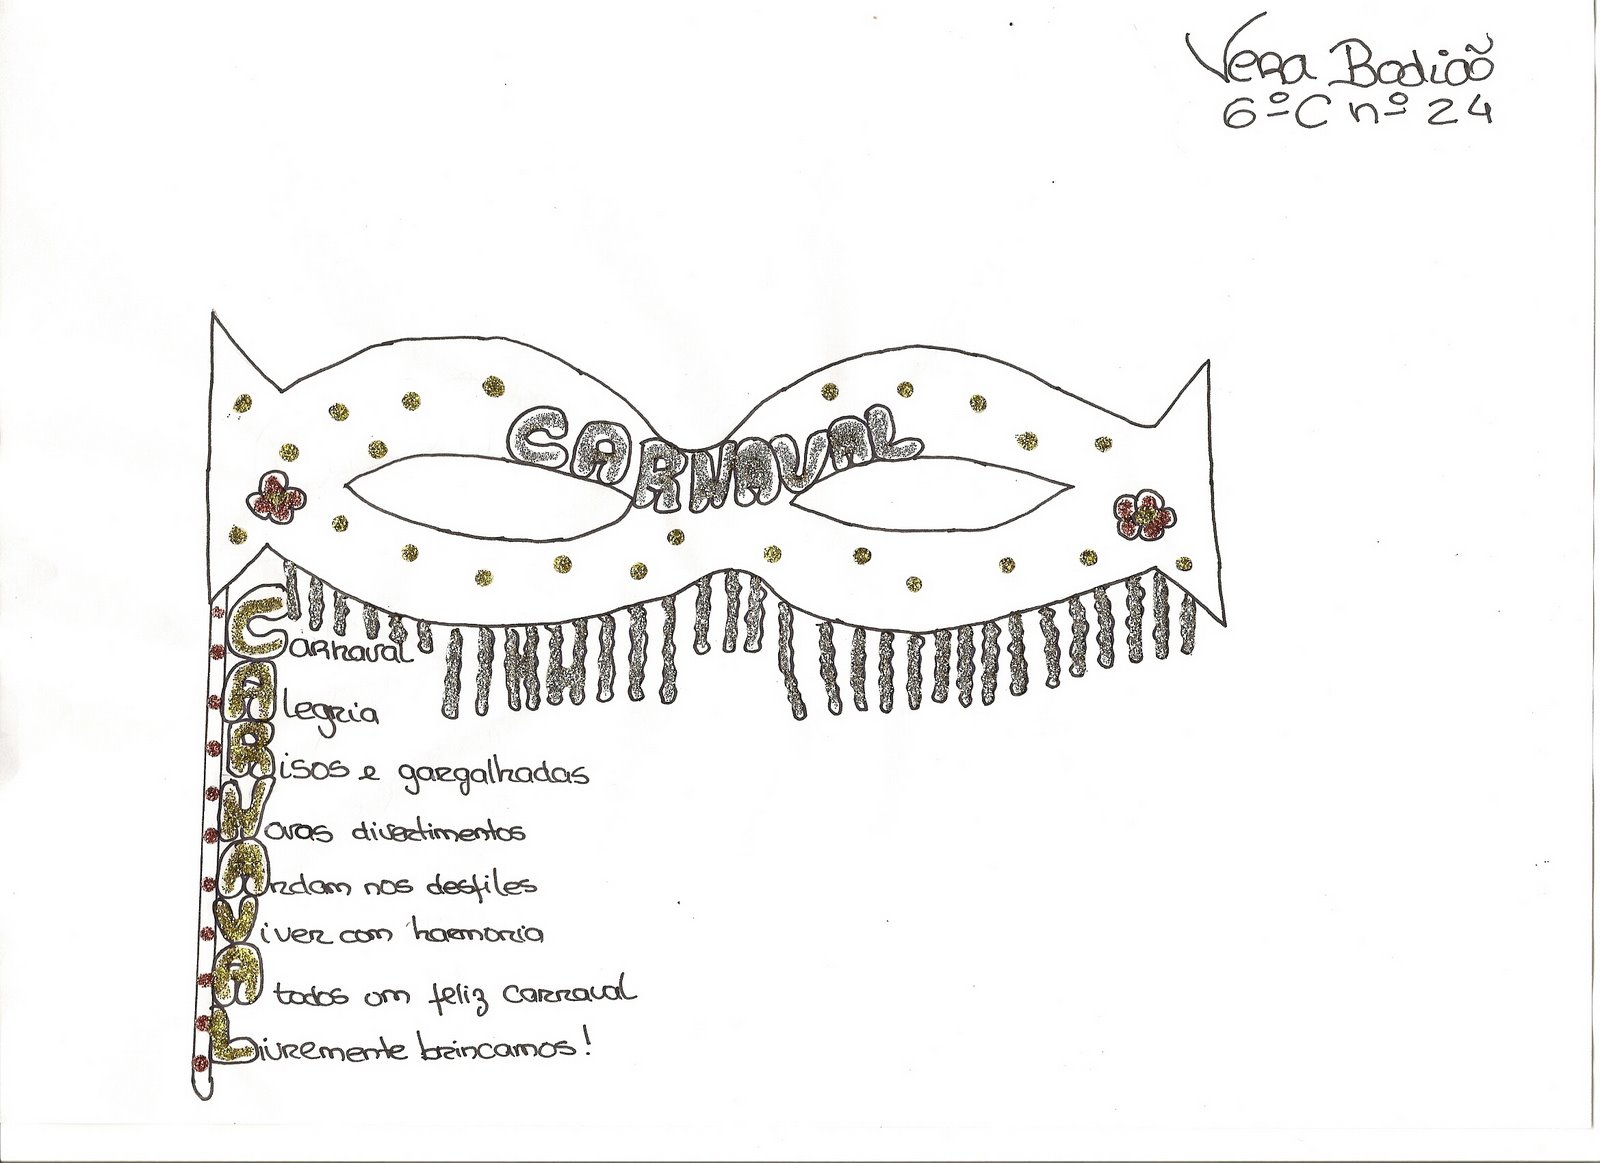 Vera Badião
6ºC nº 24
CARNAVAL
Carnaval
Alegria
Risos e gargalhadas
Novas divertimentos
Andam nos desfiles
Viver com harmonia
A todos um feliz carnaval
Livremente brincamos!